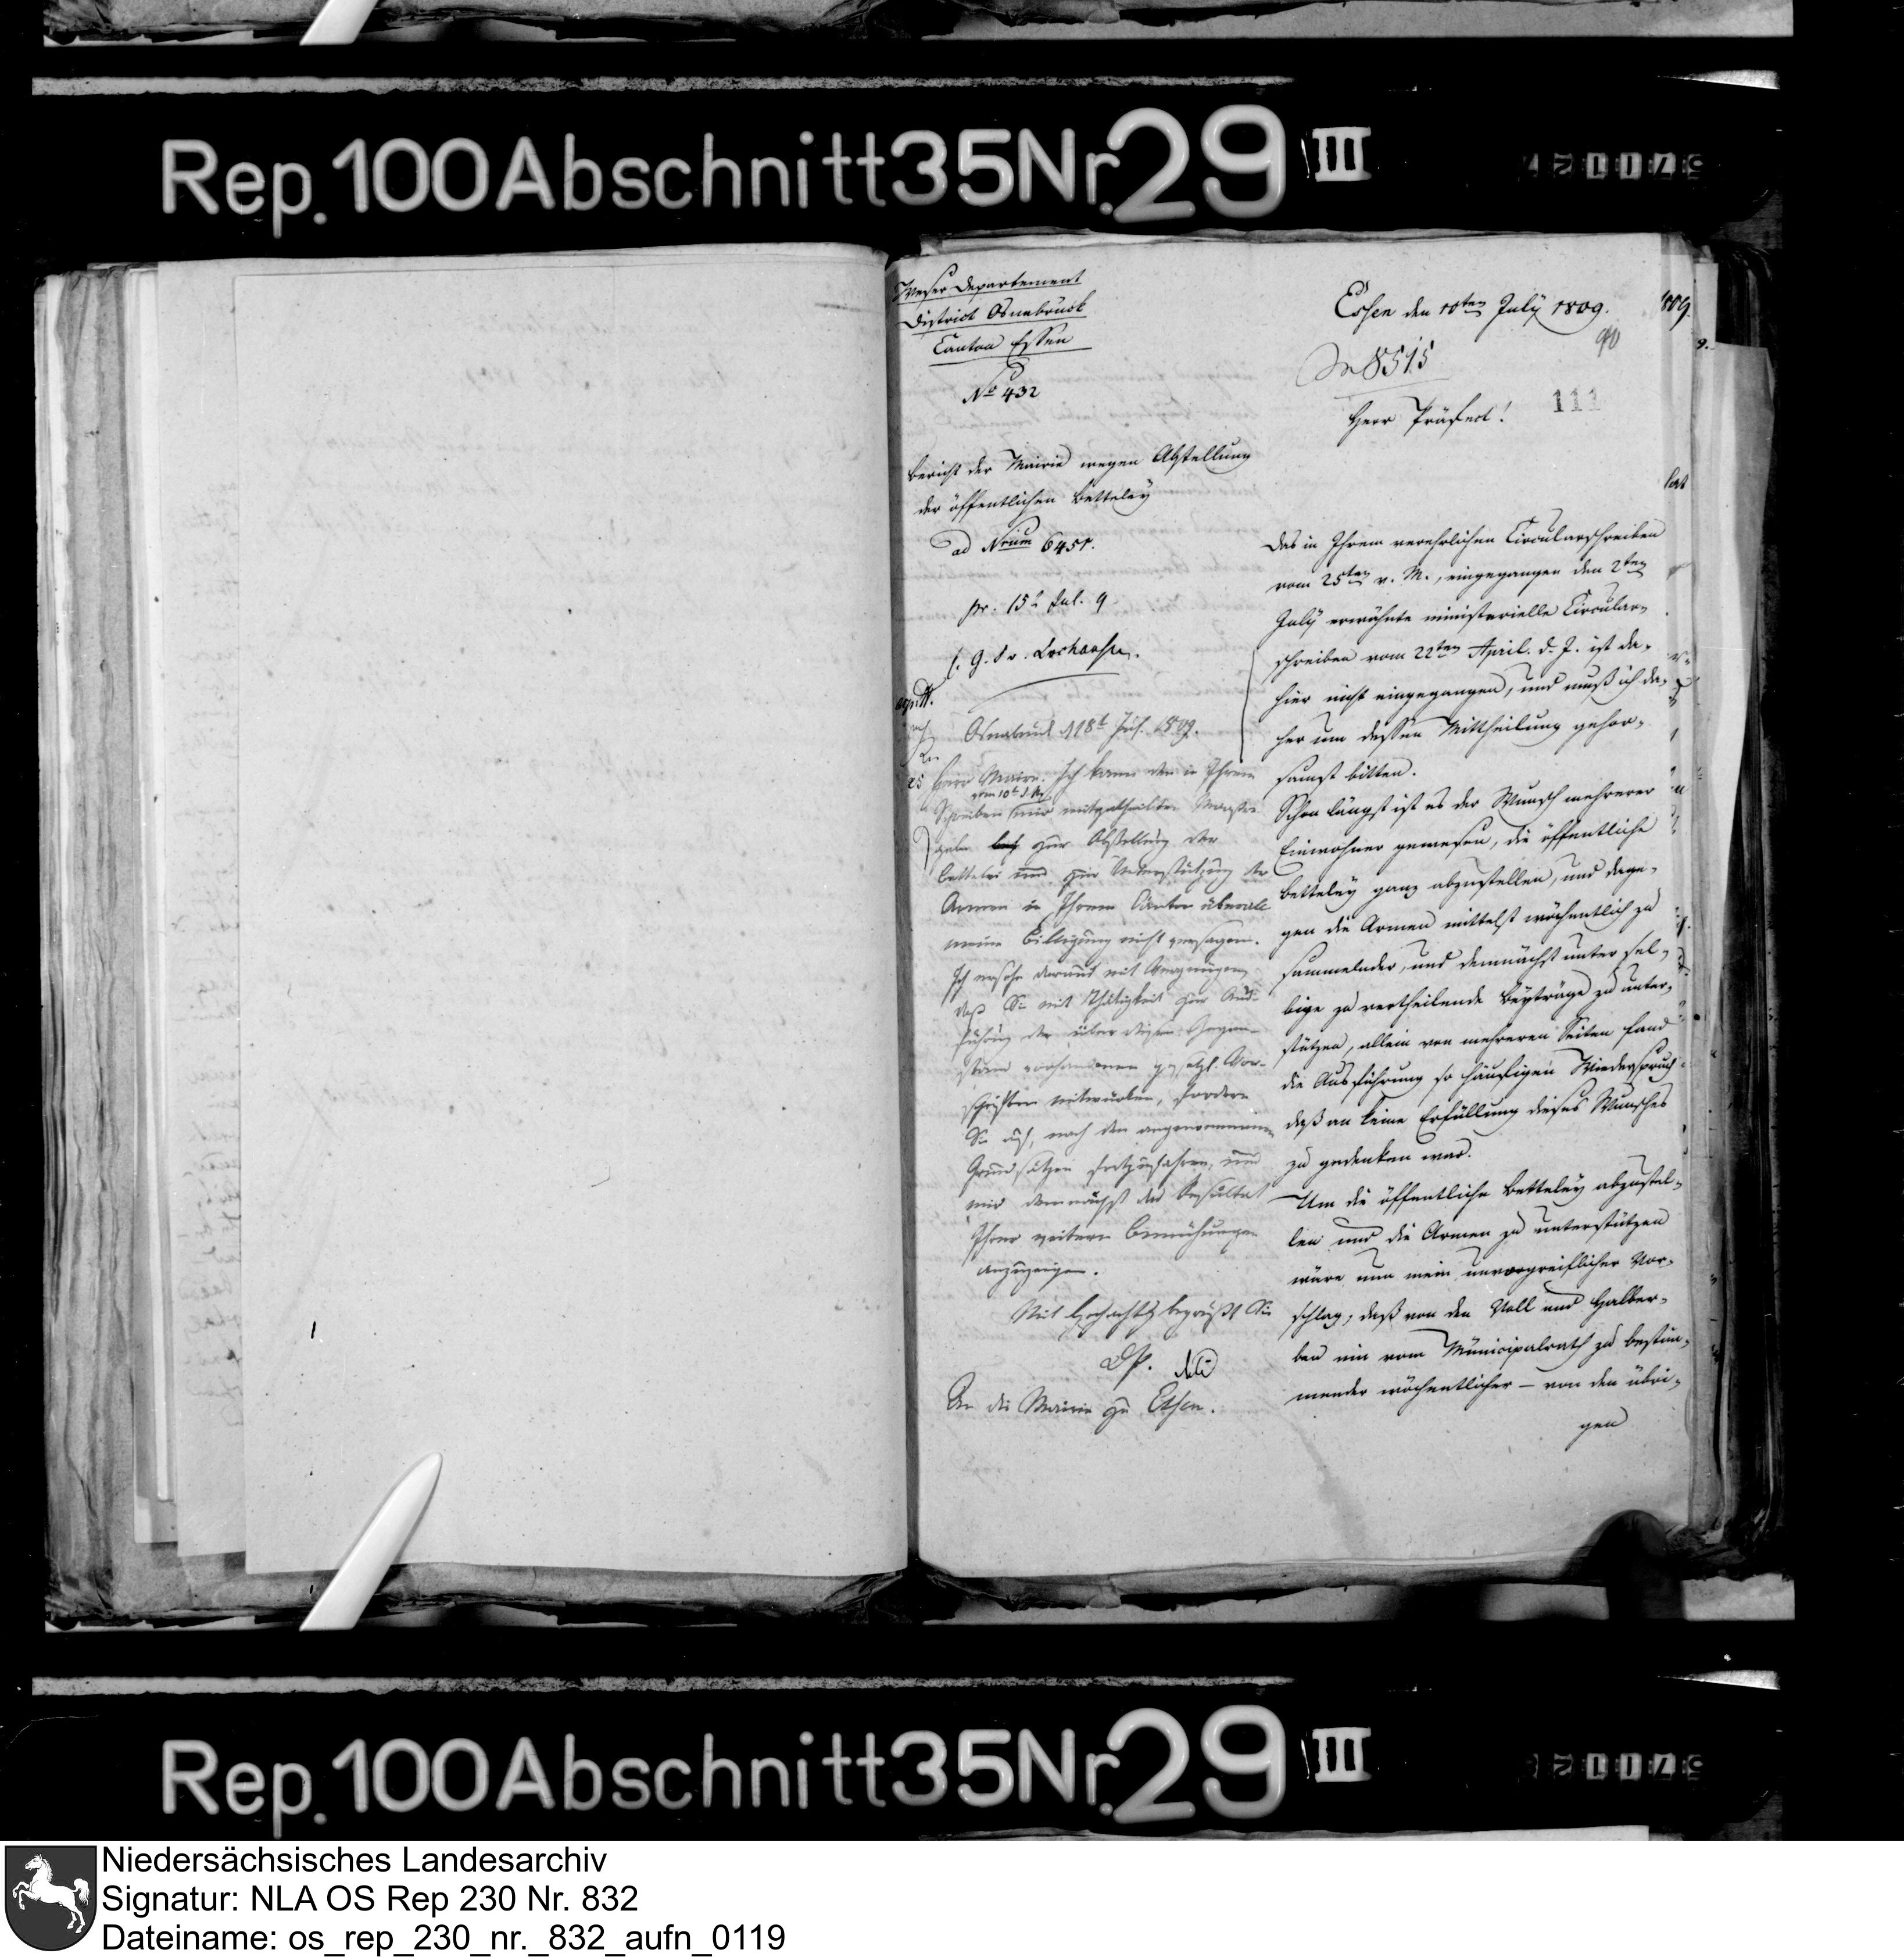 Rep. 100 Abschnitt 35 Nr. 29 III
Weser Departement
District Osnabrück
Canton Essen
No 432
Bericht der Mairie wegen Abstellung
der öffentlichen Betteley
ad Nrum 6451.
pr. 15t Jul. 9
Osnabrück d 18t Jul. 1809.
Herr Maire. Ich kann den in Ihrem
vom 10t d. M.
Schreiben mir mitgetheilten Maasre-
geln zur Abstellung der
Bettelei und zur Unterstützung der
Armen in Ihrem Canton überall
meine Billigung nicht versagen.
Ich ersehe daraus mit Vergnügen
daß Sie mit Thätigkeit zur Aus-
führung der über diesen Gegen-
stand vorhandenen gesetzl. Vor-
schriften mitwürken, fordere
Sie auf, nach den angenommenen
Grundsätzen fortzufahren, und
mir demnächst das Resultat
Ihrer weitern Bemühungen
anzuzeigen.
Mit Hochachtg begrüßt Sie
An die Mairie zu Essen.
Essen den 10ten July 1809.
8515
90
111
Herr Präfect!
Das in Ihrem verehrlichen Circularschreiben
vom 25ten v. M., eingegangen den 2ten
July erwähnte ministerielle Circular-
schreiben vom 22ten April. d. J. ist da-
hier nicht eingegangen, und muß ich da-
her um dessen Mittheilung gehor-
samst bitten.
Schon längst ist es der Wunsch mehrerer
Einwohner gewesen, die öffentliche
Betteley ganz abzustellen, und dage-
gen die Armen mittelst wöchentlich zu
sammelnder, und demnächst unter sel-
bige zu vertheilende Beyträge zu unter-
stützen, allein von mehreren Seiten fand
die Ausführung so häufigen Wiederspruch
daß an keine Erfüllung dieses Wunsches
zu gedenken war.
Um die öffentliche Betteley abzustel-
len und die Armen zu unterstützen
wäre nun mein unvorgreiflicher Vor-
schlag, daß von den Voll und Halber-
ben ein vom Municipalrath zu bestim-
mender wöchentlicher – von den übri-
gen
Rep. 100 Abschnitt 35 Nr. 29 III
Niedersächsisches Landesarchiv
Signatur: NLA OS Rep 230 Nr. 832
Dateiname: os_rep_230_nr._832_aufn_0119